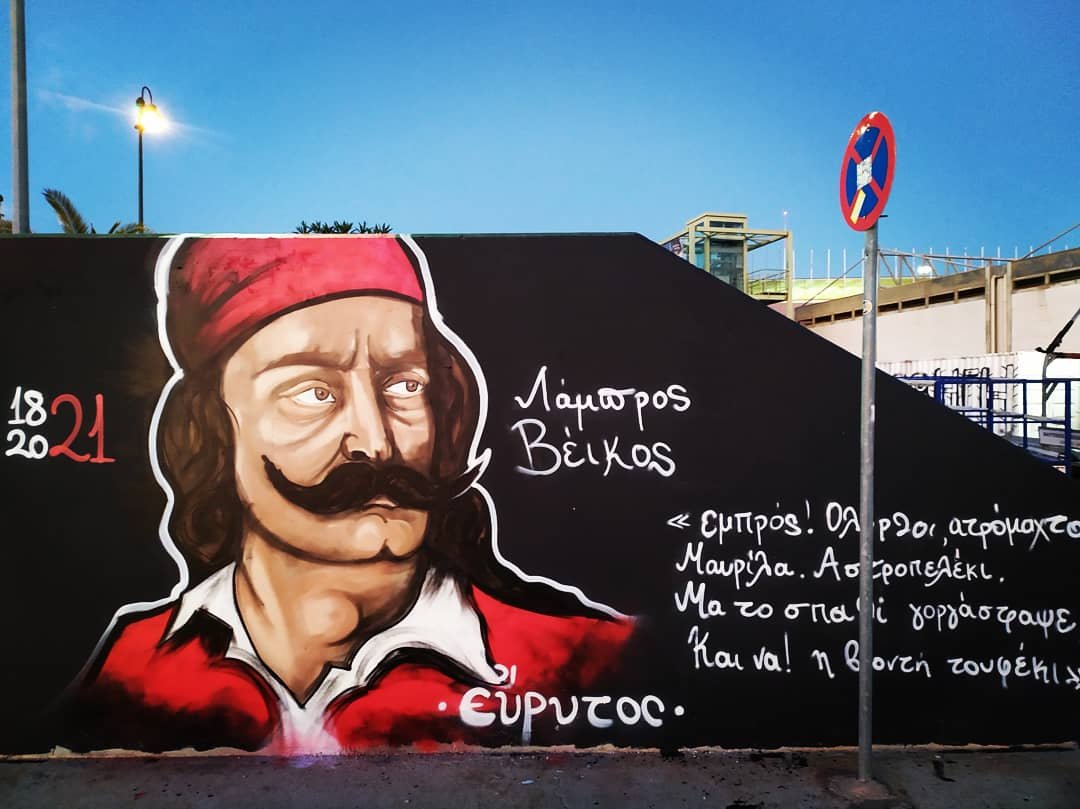 18
20 21
Λάμπρος
Βέικος
« εμπρός! Ολόρθοι, ατρόμαχτο
Μαυρίλα. Αστροπελέκι.
Μα το σπαθί γοργάστραψε
Και να! η βροντή τουφέκι »
· εὔρυτος ·